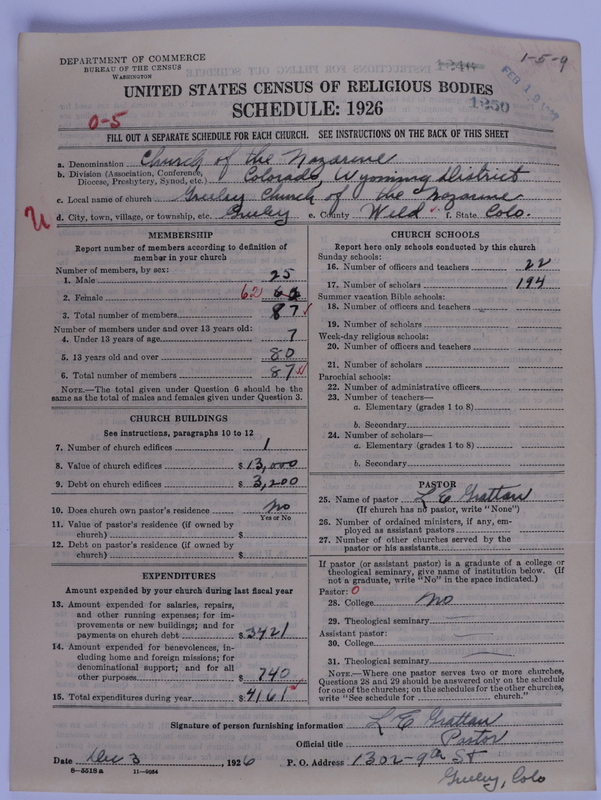 DEPARTMENT OF COMMERCE
BUREAU OF THE CENSUS
WASHINGTON
1-5-9
FEB 1
1250
UNITED STATES CENSUS OF RELIGIOUS BODIES
SCHEDULE: 1926
0-5
FILL OUT A SEPARATE SCHEDULE FOR EACH CHURCH. SEE INSTRUCTIONS ON THE BACK OF THIS SHEET
a. Denomination Church of the Nazarine
b. Division (Association, Conference, Diocese, Presbytery, Synod, etc.) Colorado, Wyoming District
c. Local name of church Greeley Church of the Nazarine
U
d. City, town, village, or township, etc. Greeley e. County Weld f. State Colo.
MEMBERSHIP
Report number of members according to definition of
member in your church
Number of members, by sex:
1. Male 25
2. Female 62
3. Total number of members 87
Number of members under and over 13 years old:
4. Under 13 years of age 7
5. 13 years old and over 80
6. Total number of members 87
NOTE.—The total given under Question 6 should be
same as the total of males and females given under Question 3.
CHURCH BUILDINGS
See instructions, paragraphs 10 to 12
7. Number of church edifices 1
8. Value of church edifices $13,000
9. Debt on church edifices $3,200
10. Does church own pastor's residence? No
Yes or No
11. Value of pastor's residence (if owned by
church) $
12. Debt on pastor's residence (if owned by
church) $
EXPENDITURES
Amount expended by your church during last fiscal year
13. Amount expended for salaries, repairs,
and other running expenses; for im-
provements or new buildings; and for
payments on church debt $3421
14. Amount expended for benevolences, in-
cluding home and foreign missions; for
denominational support; and for all
other purposes $740
15. Total expenditures during year $4161
CHURCH SCHOOLS
Report here only schools conducted by this church
Sunday schools:
16. Number of officers and teachers 22
17. Number of scholars 194
Summer vacation Bible schools:
18. Number of officers and teachers
19. Number of scholars
Week-day religious schools:
20. Number of officers and teachers
21. Number of scholars
Parochial schools:
22. Number of administrative officers
23. Number of teachers—
a. Elementary (grades 1 to 8)
b. Secondary
24. Number of scholars—
a. Elementary (grades 1 to 8)
b. Secondary
PASTOR
25. Name of pastor L E Grattan
(If church has no pastor, write "None")
26. Number of ordained ministers, if any, em-
ployed as assistant pastors
27. Number of other churches served by the
pastor or his assistants
If pastor (or assistant pastor) is a graduate of a college or
theological seminary, give name of institution below. (If
not a graduate, write "No" in the space indicated.)
Pastor: 0
28. College No
29. Theological seminary
Assistant pastor:
30. College
31. Theological seminary
NOTE.—Where one pastor serves two or more churches,
Questions 28 and 29 should be answered only on the schedule
for one of the churches; on the schedules for the other churches,
write "See schedule for church."
Signature of person furnishing information L E Grattan
Official title Pastor
Date Dec 3, 1926 P. O. Address 1302-9th St
Greeley, Colo
8-5518 a 11-9084